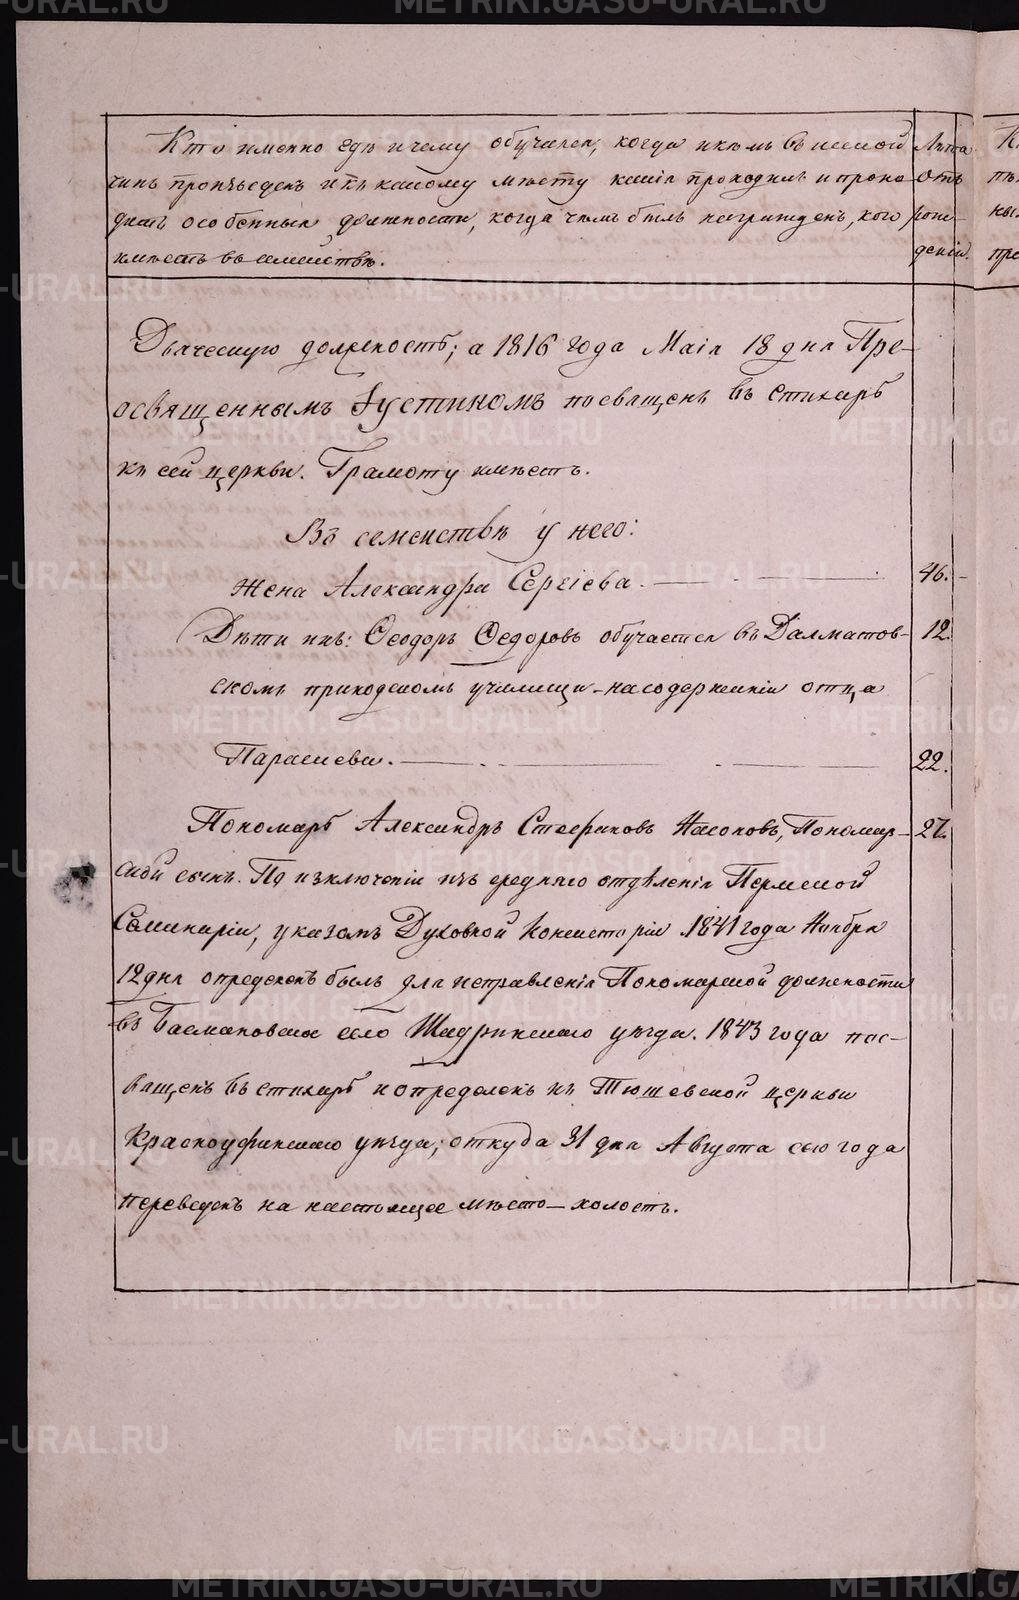 Кто именно гдѣ и чему обучался, когда и кѣмъ въ нынѣшній
чинъ произведенъ и къ какому мѣсту какія проходилъ и прохо-
дитъ особенныя должности, когда чѣмъ былъ награжденъ, кого
имѣетъ въ семействѣ.
Лѣта
отъ
рож-
денія.
Дьяческую должность; а 1816 года Маія 18 дня Пре-
освященнымъ Іустиномъ посвященъ въ стихарь
къ сей церкви. Грамоту имѣетъ.
Въ семействѣ у него:
Жена Александра Сергіева. 46.
Дѣти ихъ: Ѳеодоръ Ѳедоровъ обучается въ Далматов- 12.
скомъ приходскомъ училищи - на содержаніи отца
Парасиева. 22.
Пономарь Александръ Стефановъ Насоновъ, Пономар- 27.
скій сынъ. По изключеніи изъ средняго отдѣленія Пермской
Семинаріи, указомъ Духовной Консисторіи 1841 года Ноября
12 дня опредѣленъ былъ для исправленія Пономарской должности
въ Басмановское село Шадринскаго уѣзда. 1843 года пос-
вященъ въ стихарь и опредѣленъ къ Тюшевской церкви
Красноуфимскаго уѣзда; откуда 31 дня Августа сего года
переведенъ на настоящее мѣсто - холостъ.
METRIKI.GASO-URAL.RU